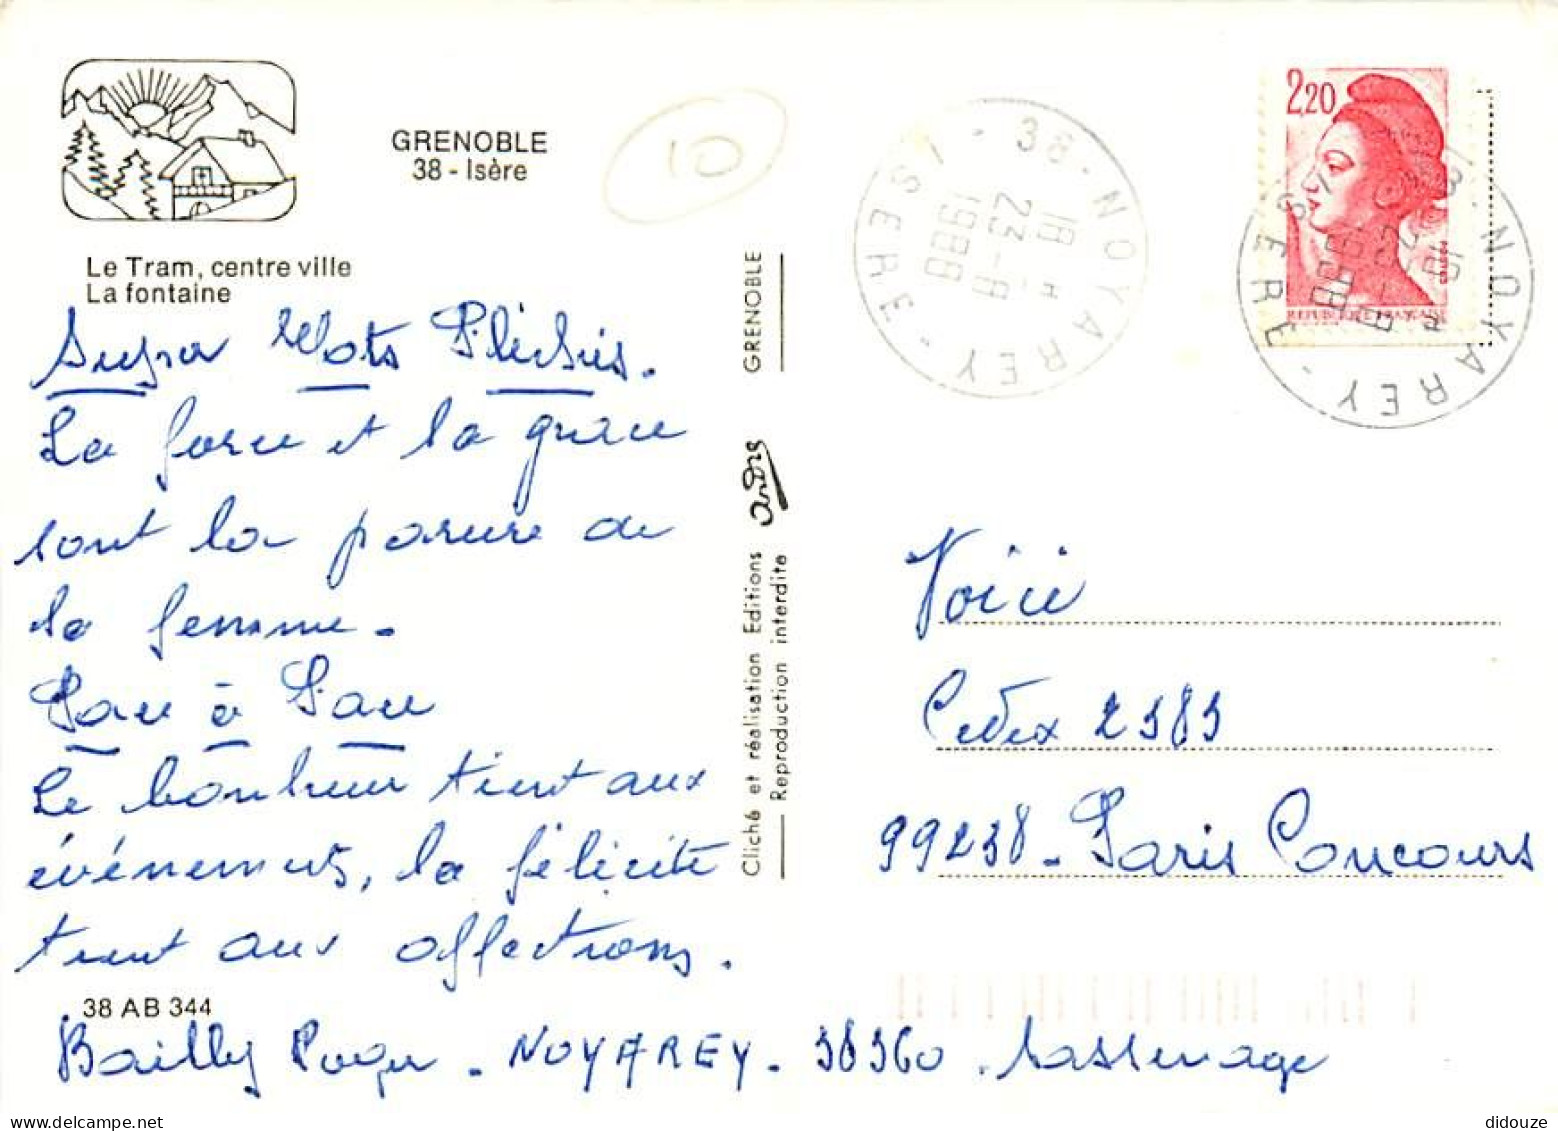 GRENOBLE
38 - Isère
10
Le Tram, centre ville
La fontaine
Super Mots Fléchés.
La force et la grâce
sont la parure de
la femme.
Pas à Pas
Le bonheur tient aux
événements, la félicité
tient aux affections.
38 AB 344
Bailly Roger - NOYAREY - 38360 - Sassenage
GRENOBLE
André
Cliché et réalisation Editions
Reproduction interdite
38 - NOYAREY - ISERE
18 H
23 - 8
1988
2,20
REPUBLIQUE FRANÇAISE
38 - NOYAREY - ISERE
18 H
23 - 8
1988
Voici
Cedex 2383
99238 - Paris Concours
delcampe.net
didouze